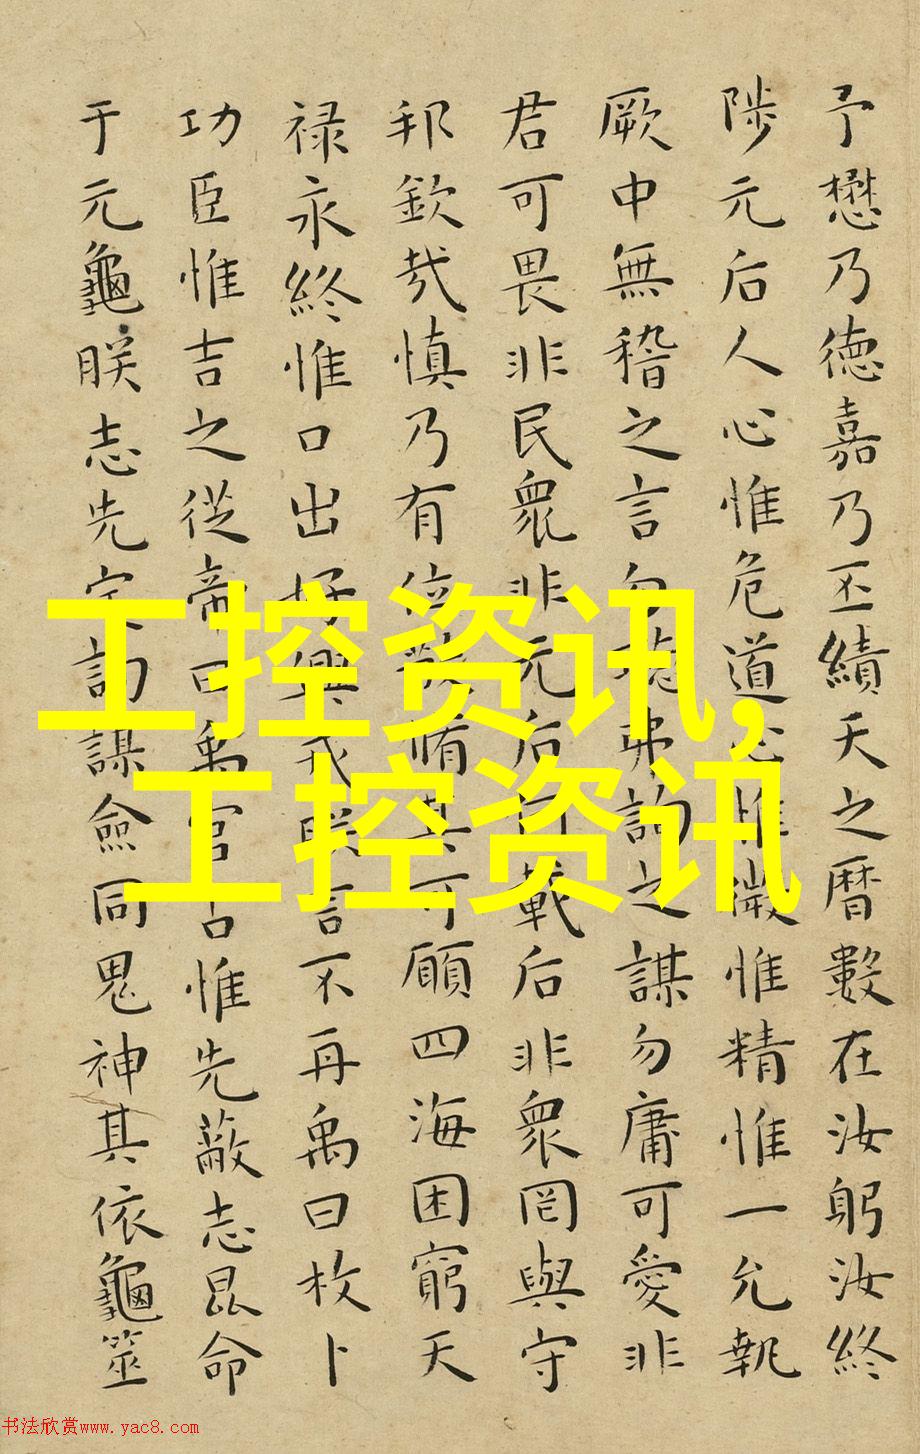 予懋乃德嘉乃丕績天之暦數在汝躬汝終
陟元后人心惟危道心惟微惟精惟一允執
厥中無稽之言勿聽弗詢之謀勿庸可愛非
君可畏非民衆非元后何戴后非衆罔與守
邦欽哉慎乃有位敬脩其可願四海困窮天
禄永終惟口出好興戎朕言不再禹曰枚卜
功臣惟吉之從帝曰禹官占惟先蔽志昆命
于元龜朕志先定詢謀僉同鬼神其依龜筮
工控资讯,
工控资讯
书法欣赏www.yac8.com